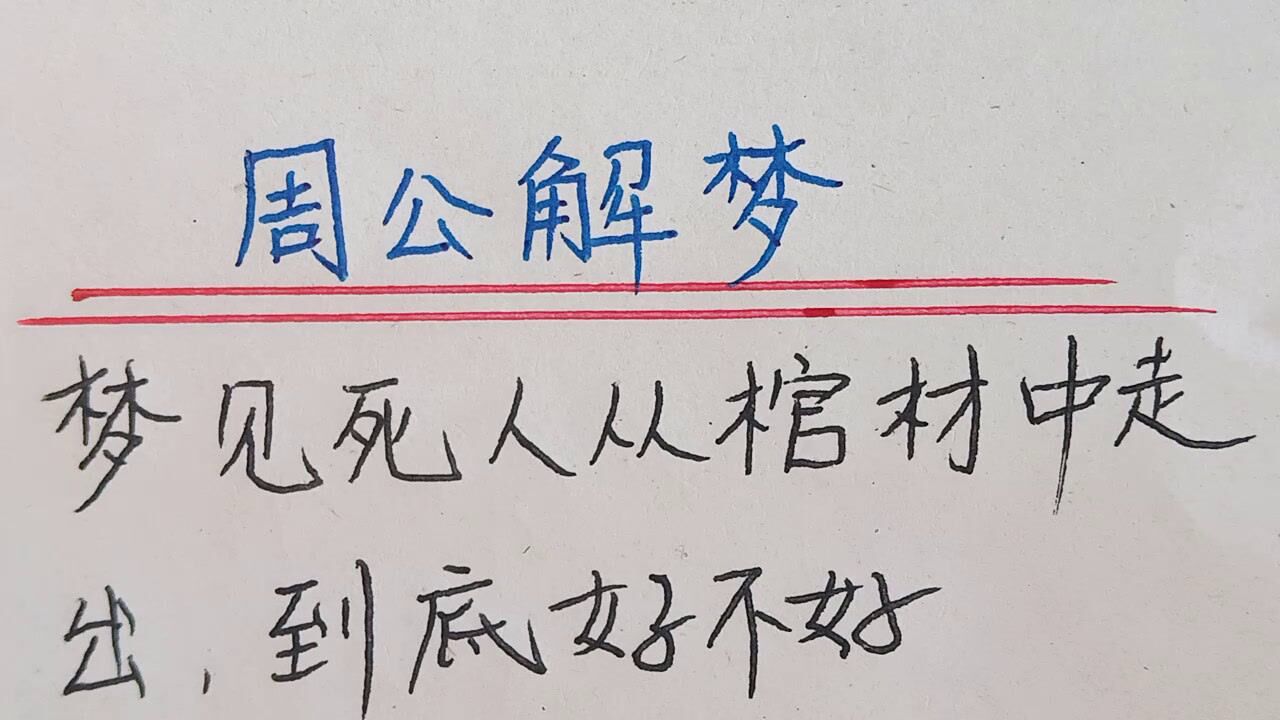 周公解梦
梦见死人从棺材中走
出,到底好不好